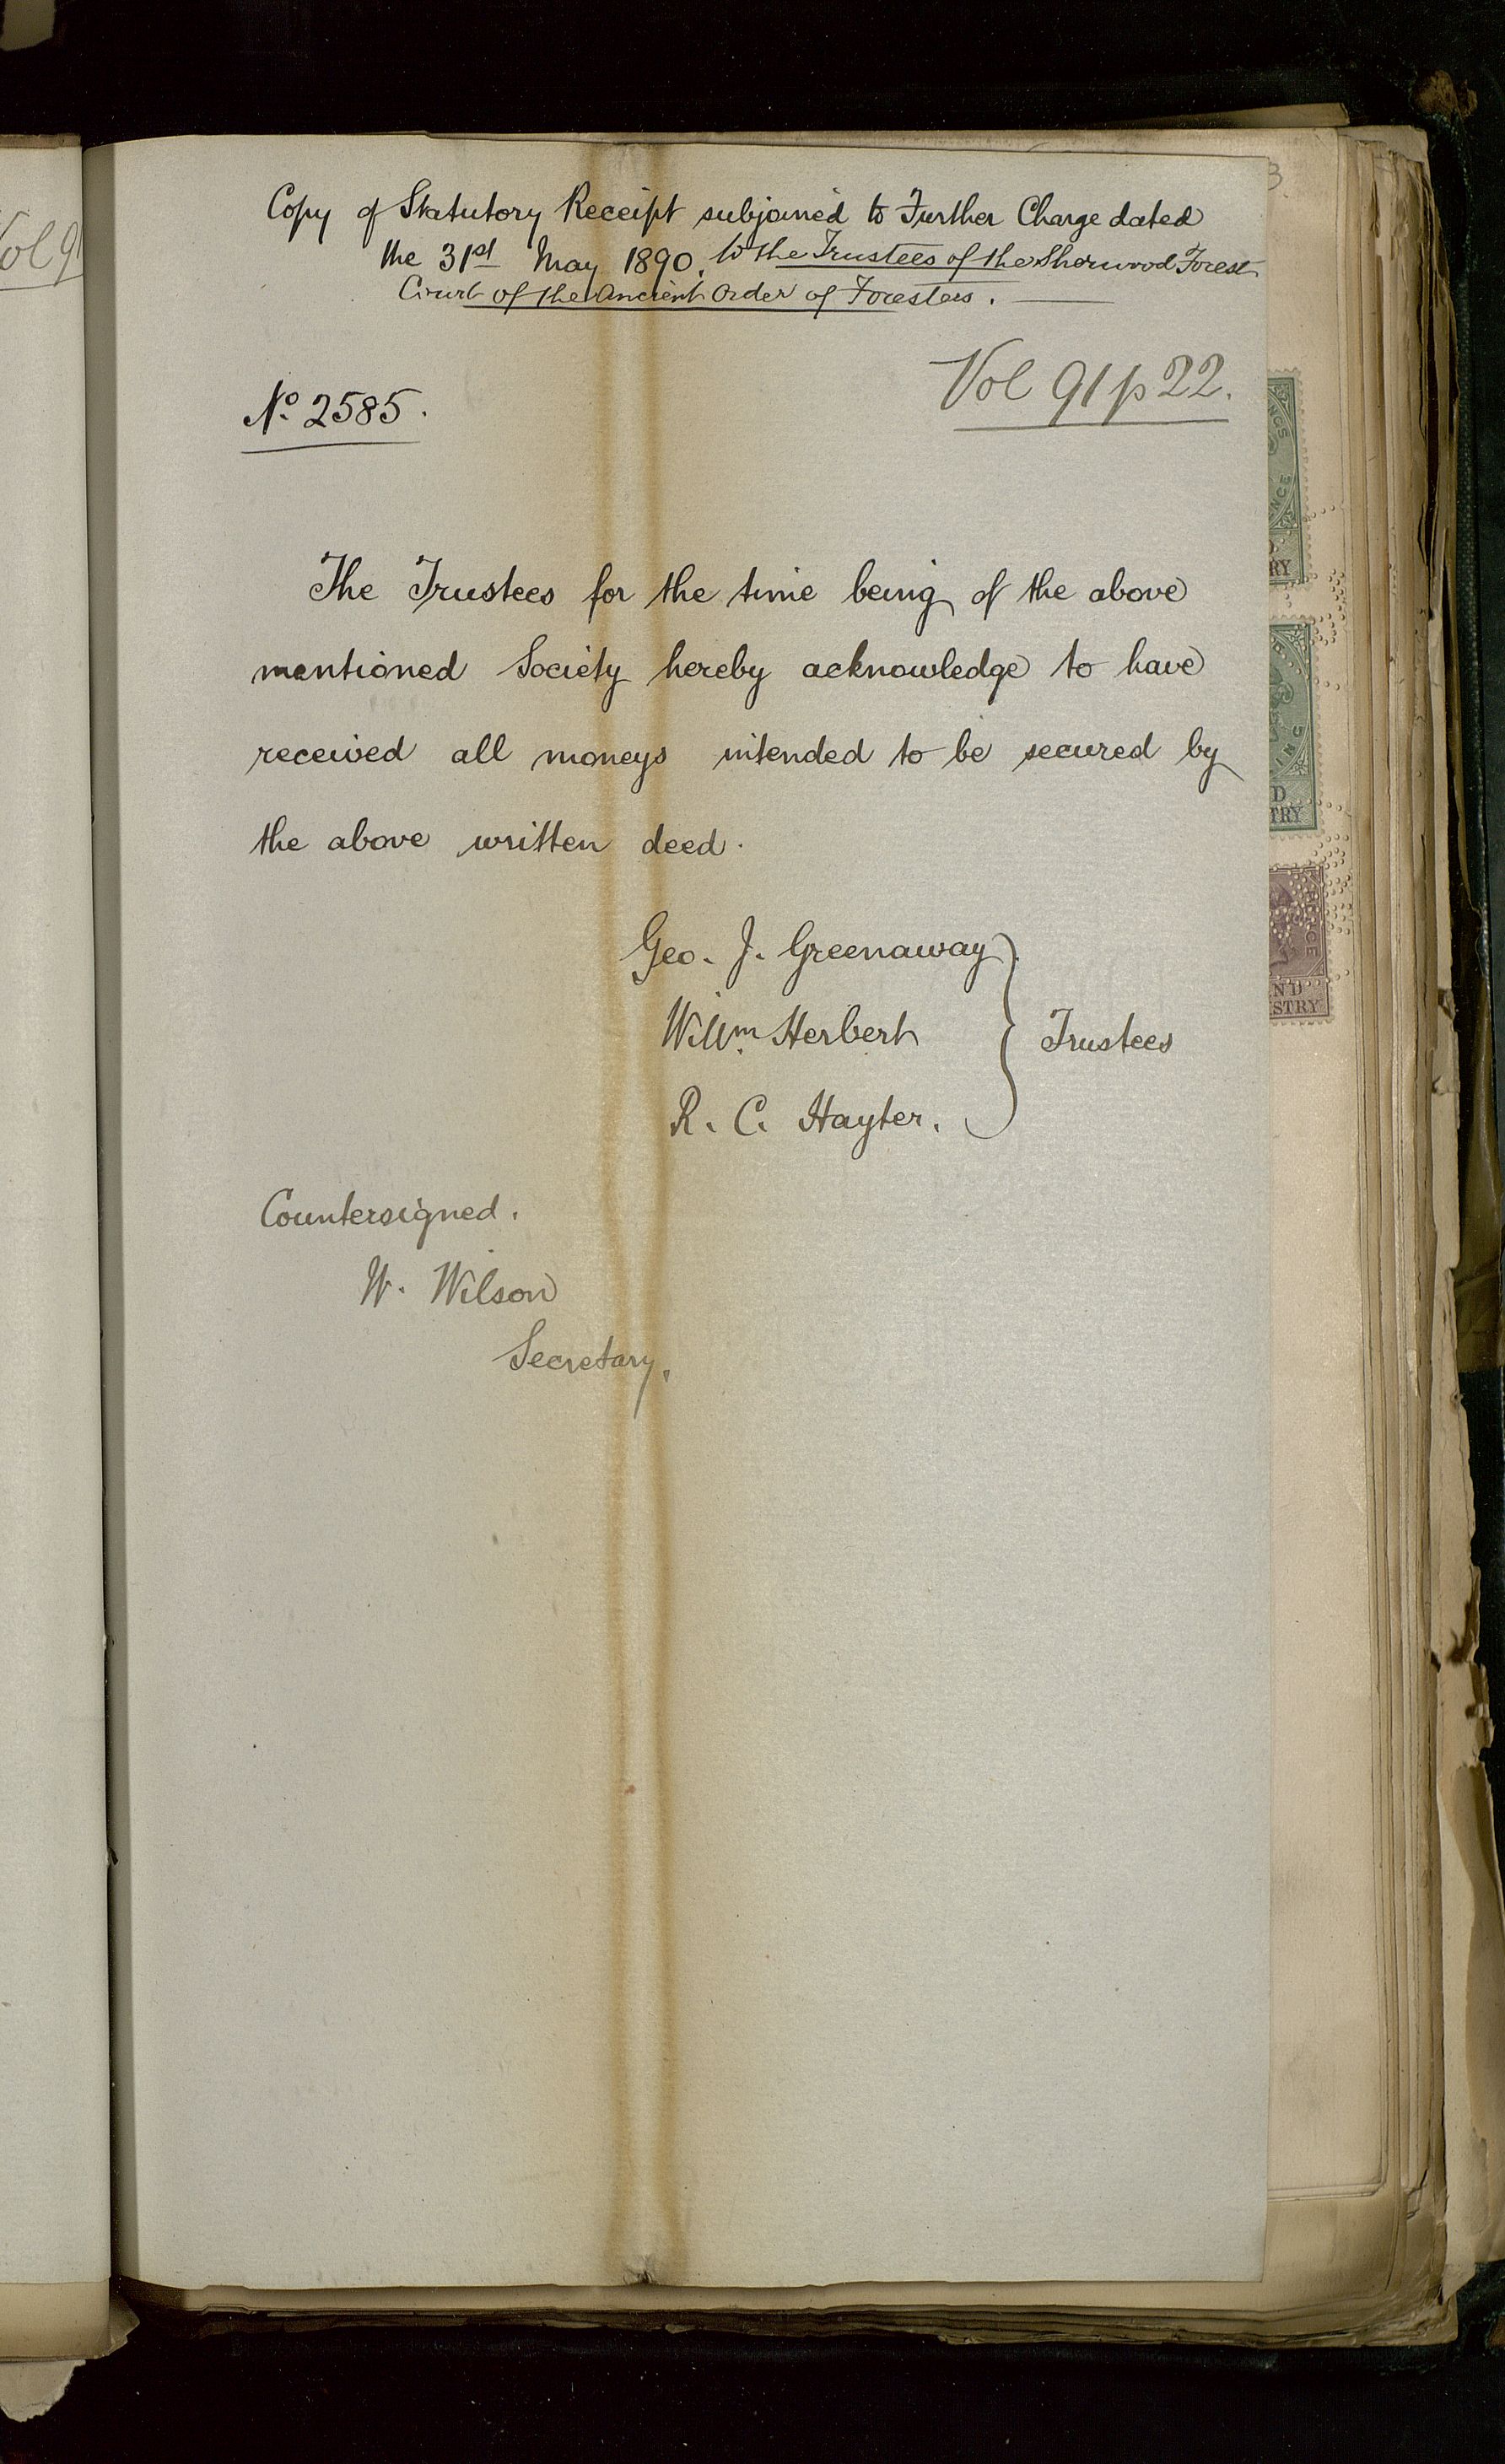 Copy of Statutory Receipt subjoined to Further Charge dated
the 31st May 1890. to the Trustees of the Sherwood Forest
Court of the Ancient Order of Foresters.
Vol 91 p 22.
No. 2585.
The Trustees for the time being of the above
mentioned Society hereby acknowledge to have
received all moneys intended to be secured by
the above written deed.
Geo. J. Greenaway
Willm. Herbert
Trustees
R. C. Hayter.
Countersigned.
W. Wilson
Secretary.
Vol 9